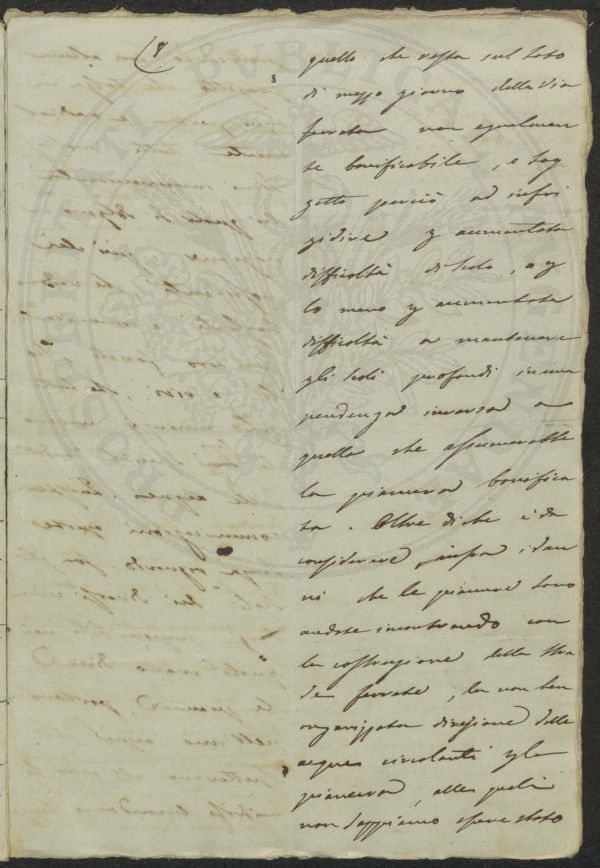 8
quello che resta sul lato
di mezzo giorno della via
ferrata non egualmen
te bonificabile, e sog
getto perciò ad infri
gidire p aumentata
difficoltà di scolo, o p
lo meno p aumentata
difficoltà a mantenere
gli scoli profondi in una
pendenza inversa a
quella che assumerebbe
la pianura bonifica
ta. Oltre di che è da
considerare, infra i dan
ni che le pianure sono
andate incontrando con
la costruzione della stra
de ferrate, la non ben
organizzata direzione delle
acque circolanti p la
pianura, alle quali
non sappiamo essere stato